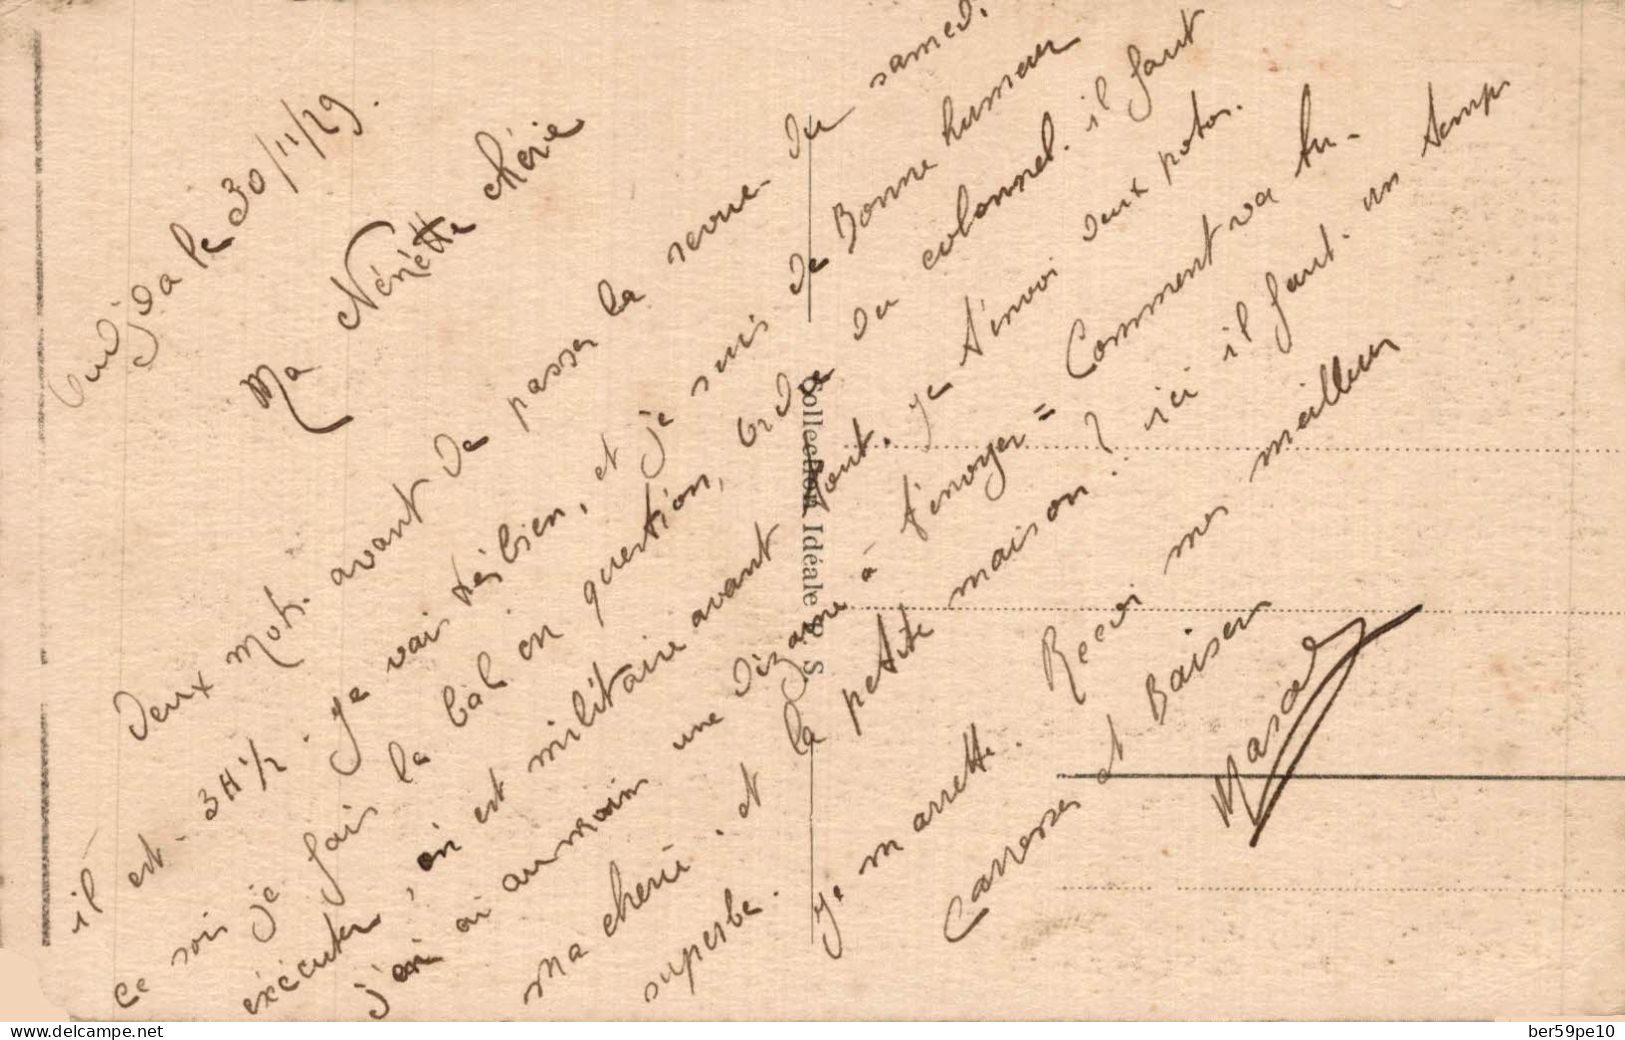 Oudjda le 30/11/29.
Ma Nénétte chérie
Deux mots. avant de passer la revue du samedi.
il est 3H 1/2. je vais très bien, et je suis de Bonne humeur
ce soir je fais la bàh on question, ordre du colonnel. il faut
exécuter, on est militaire avant tout. je t'envoi deux potos.
j'en ai au moin une dizaine à t'envoyer = Comment va tu-
ma cheri. et la petite maison? ici il faut. un temps
superbe.
je m arrette. Recoi mes meilleur
Carresses et Baisers
Collection Idéale P. S
www.delcampe.net
ber59pe10